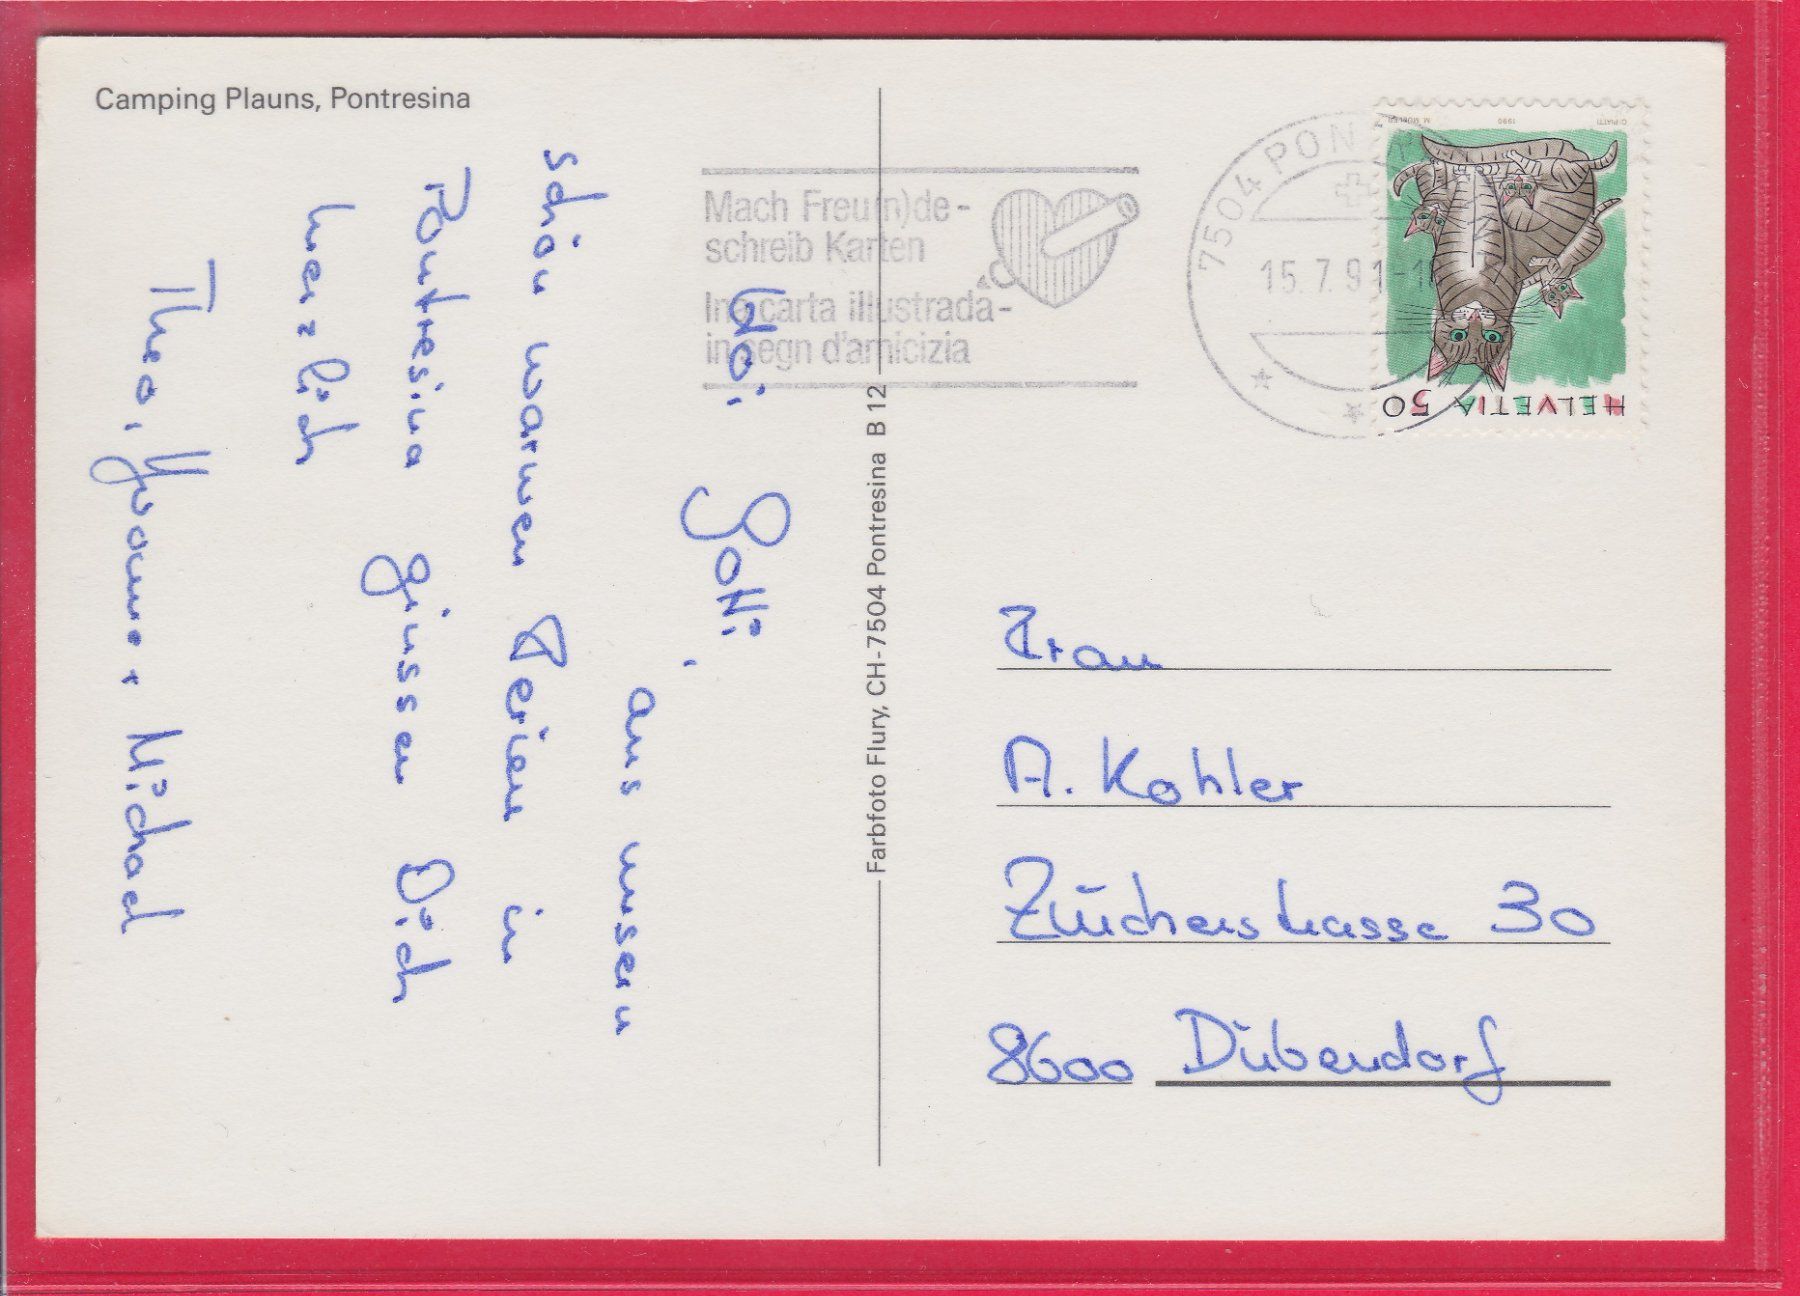 Camping Plauns, Pontresina
Mach Freu(n)de-
schreib Karten
Ina carta illustrada-
in segn d'amicizia
7504 PON
15.7.91-1
C. PIATTI 1990 M. MÜLLER
HELVETIA 50
Farbfoto Flury, CH-7504 Pontresina B 12
Hoi Gotti,
aus unsern
schön warmen Ferien in
Pontresina grüssen Dich
herzlich
Theo, Yvonne + Michael
Frau
A. Kohler
Zürcherstrasse 30
8600 Dübendorf